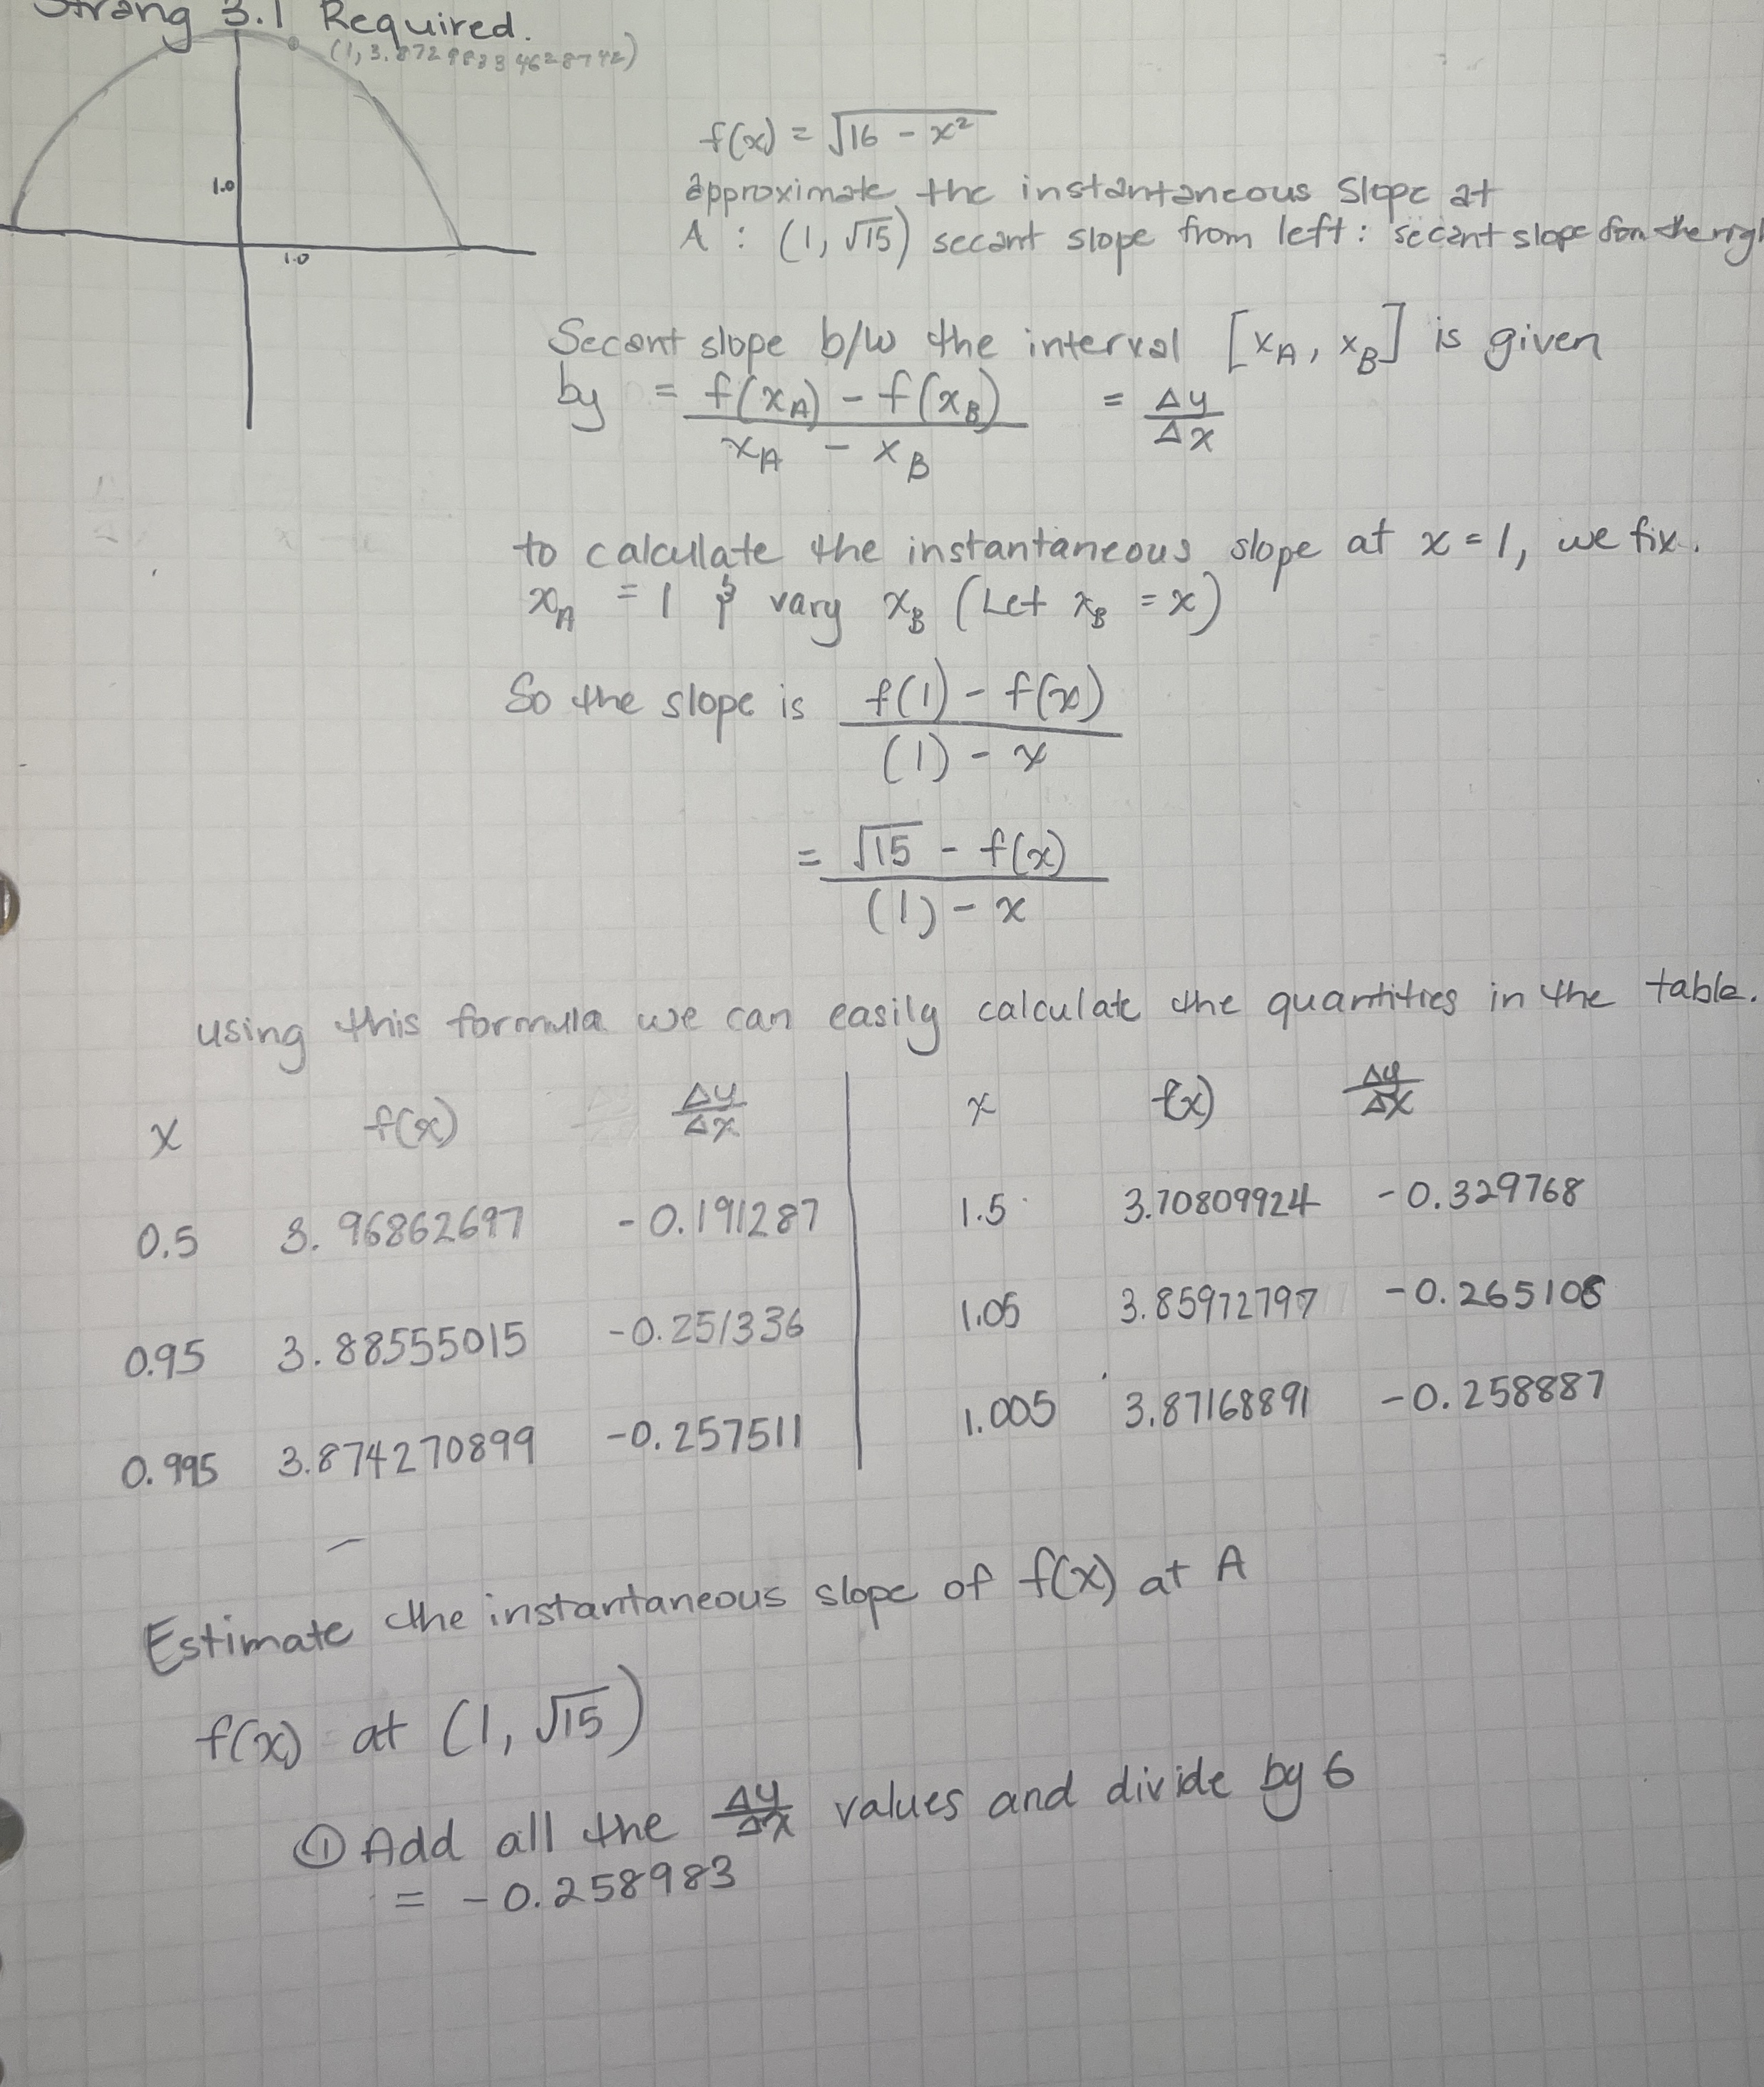 Strang 3.1 Required.
(1, 3.87298334628742)
1.0
1.0
f(x) = √16 - x²
approximate the instantaneous slope at
A : (1, √15) secant slope from left: secant slope from the righ
Secant slope b/w the interval [xA, xB] is given
by = f(xA) - f(xB) / xA - xB = Δy/Δx
to calculate the instantaneous slope at x = 1, we fix.
xA = 1 & vary xB (Let xB = x)
So the slope is f(1) - f(x) / (1) - x
= √15 - f(x) / (1) - x
using this formula we can easily calculate the quantities in the table.
x f(x) Δy/Δx x f(x) Δy/Δx
0.5 3.96862697 -0.191287 1.5 3.70809924 -0.329768
0.95 3.88555015 -0.251336 1.05 3.85972797 -0.265108
0.995 3.874270899 -0.257511 1.005 3.87168891 -0.258887
Estimate the instantaneous slope of f(x) at A
f(x) at (1, √15)
① Add all the Δy/Δx values and divide by 6
= -0.258983